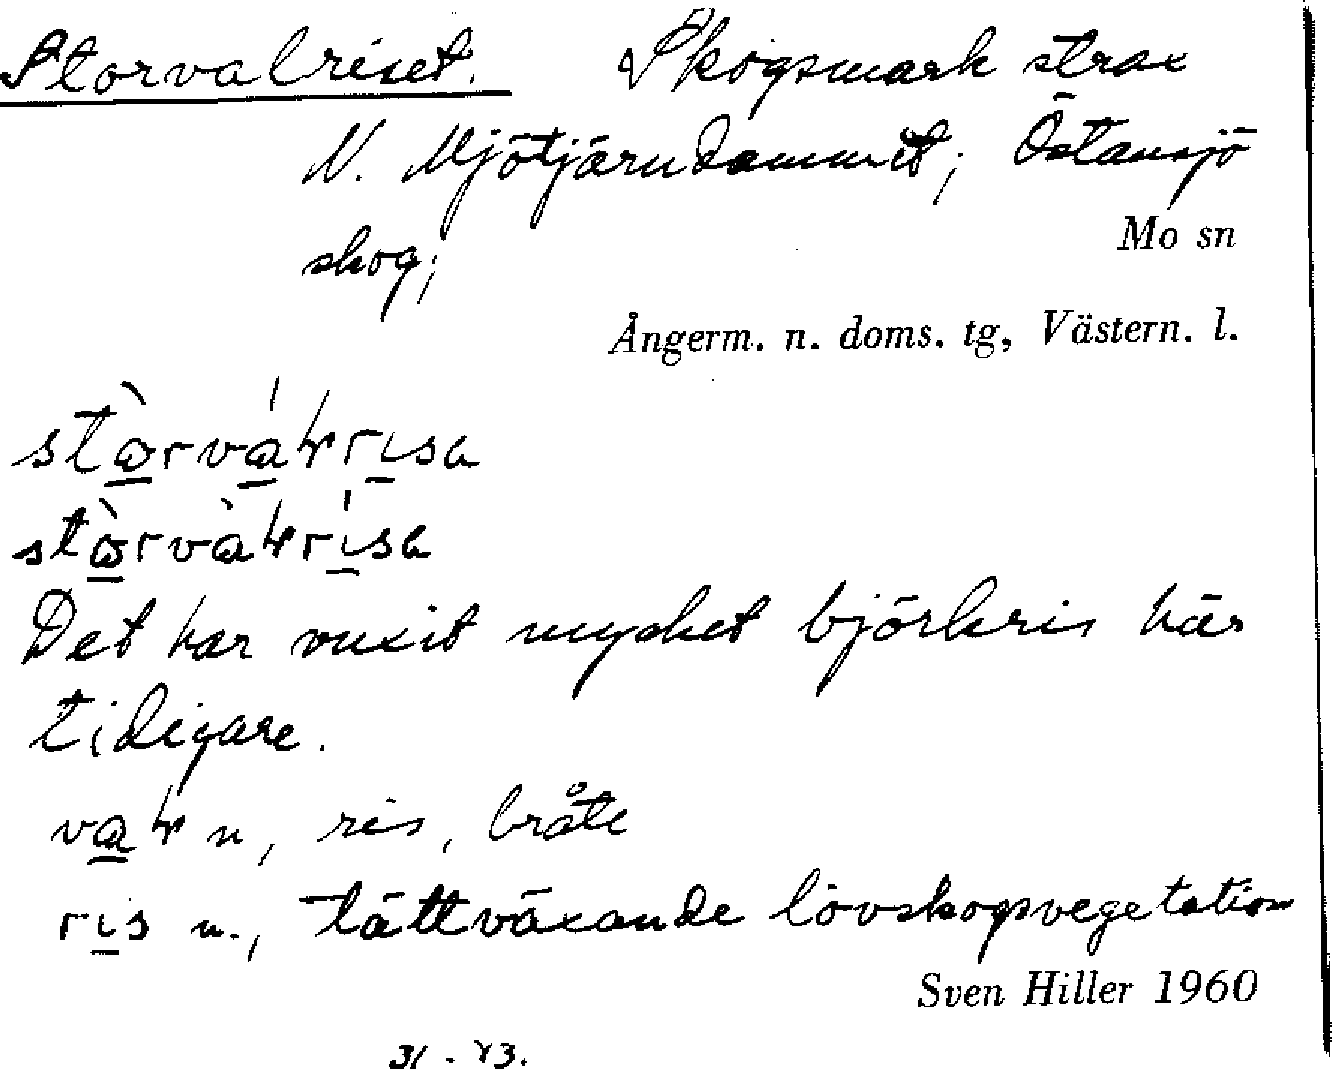 Storvalriset. Skogsmark strax
N. Mjötjärndammet; Östansjö
skog;
Mo sn
Ångerm. n. doms. tg, Västern. l.
Det har vuxit mycket björkris här
tidigare.
n, ris, bråte
ris n., tättväxande lövskogsvegetation
Sven Hiller 1960